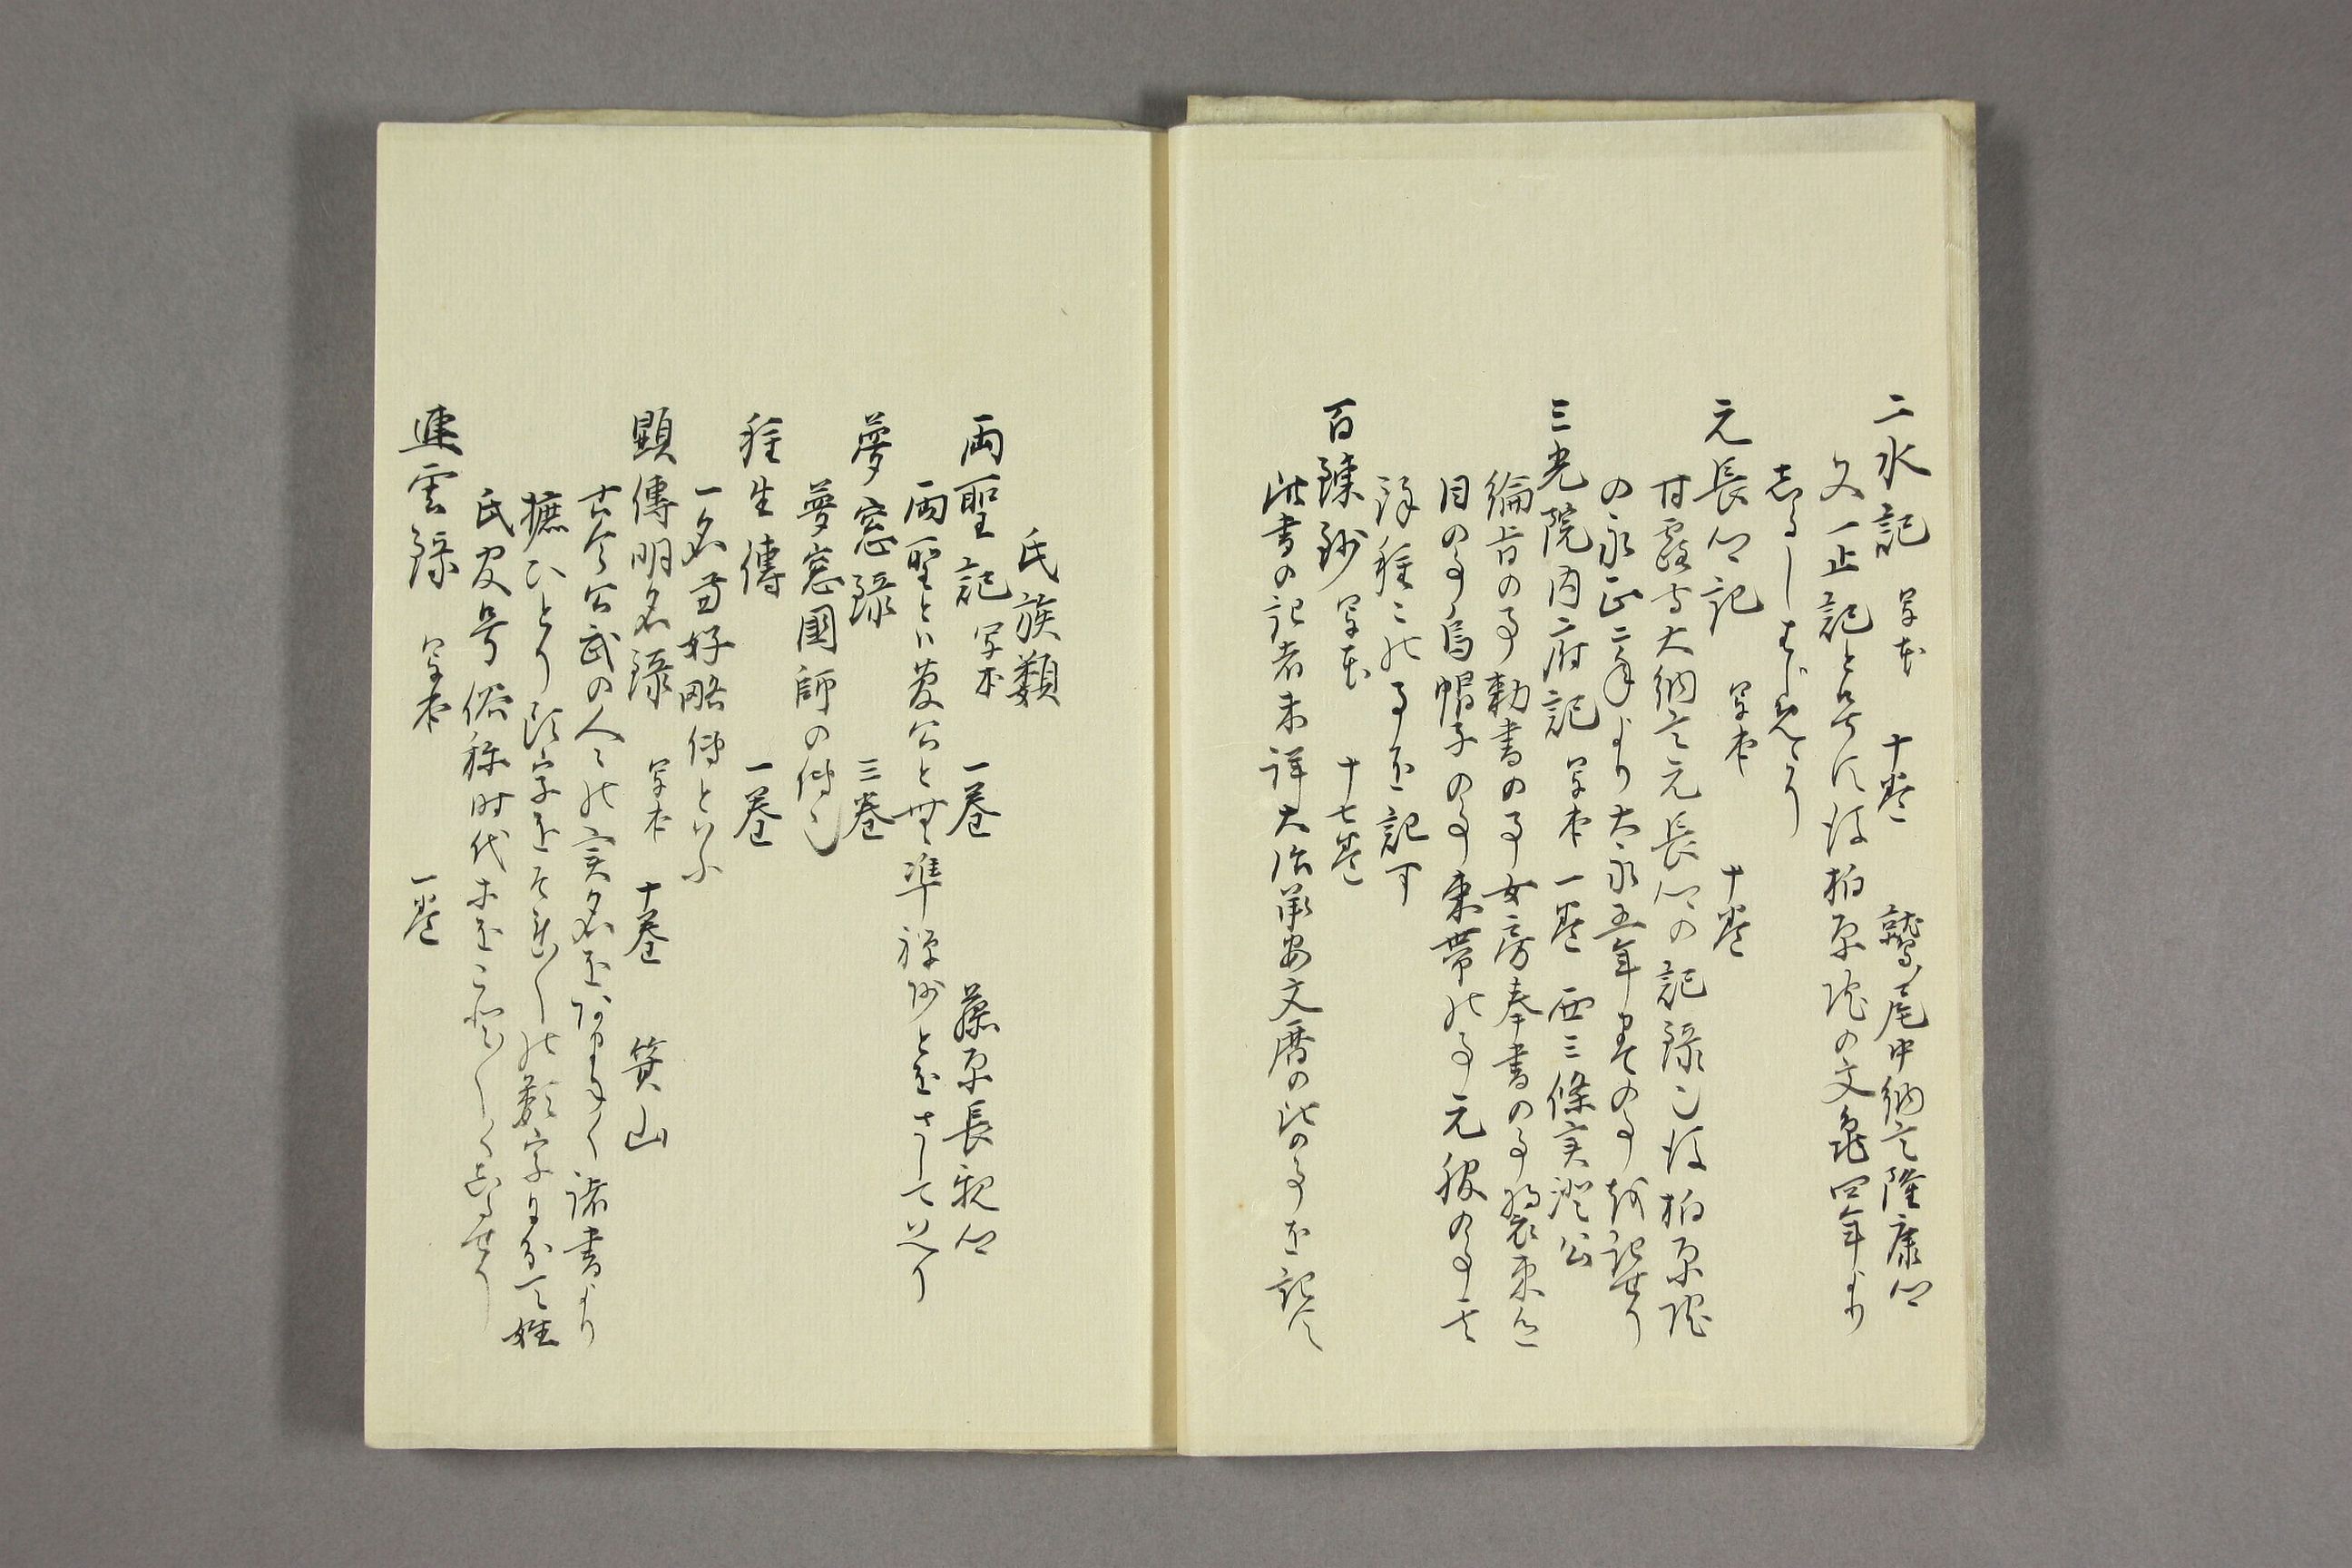 二水記 写本 十巻 鷲尾中納言隆康卿
又一止記と号す後柏原院の文亀四年より
しるしはじめたり
元長卿記 写本 十巻
甘露寺大納言元長卿の記録也後柏原院
の永正二年より大永五年までの事を記せり
三光院内府記 写本 一巻 西三條実澄公
綸旨の事勅書の事女房奉書の事装束色
目の事烏帽子の事束帯の事元服の事其
外種々の事を記す
百錬鈔 写本 十七巻
此書の記者未詳大治承安文暦の比の事を記す
氏族類
両聖記 写本 一巻 藤原長親卿
両聖とハ菅公と無準禅師とをさしていへり
夢窓録 三巻
夢窓國師の傳也
種生傳 一巻
一名兼好略傳といふ
顕傳明名録 写本 十巻 箕山
古今公武の人々の実名をあまねく諸書より
摭ひとり頭字をそれ〳〵の類字に分て姓
氏官号俗称時代等をこと〴〵く志るせり
連雲録 写本 一巻